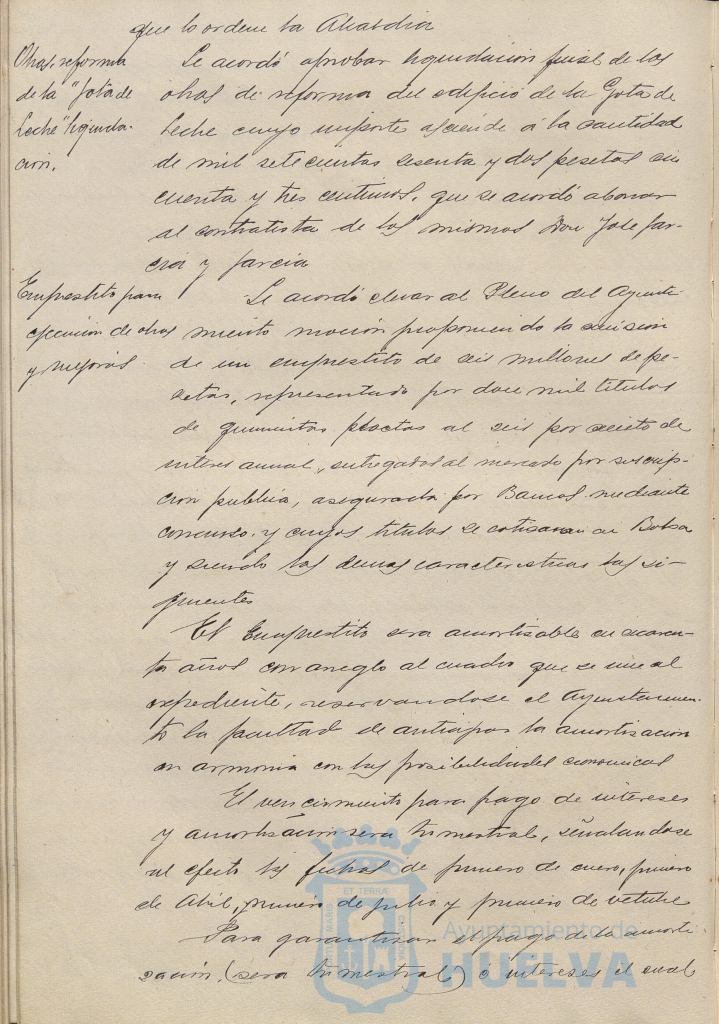 que lo ordene la Alcaldia
Obras reforma
de la "Gota de
Leche" liquida-
cion.
Se acordó aprobar liquidacion final de las
obras de reforma del edificio de la Gota de
Leche cuyo importe asciende á la cantidad
de mil setecientas sesenta y dos pesetas cin
cuenta y tres centimos, que se acordó abonar
al contratista de las mismas Don Jose Gar-
cia y Garcia
Emprestito para
ejecucion de obras
y mejoras.
Se acordó elevar al Pleno del Ayunta-
miento mocion proponiendo la emision
de un emprestito de seis millones de pe-
setas, representado por doce mil titulos
de quinientas pesetas al seis por ciento de
interes anual, entregados al mercado por suscrip-
cion publica, asegurada por Bancos mediante
concurso y cuyos titulos se cotizaran en Bolsa
y siendo las demas caracteristicas las si-
guientes
El Emprestito sera amortizable en cuaren-
ta años con arreglo al cuadro que se une al
expediente, reservandose el Ayuntamien-
to la facultad de anticipar la amortizacion
en armonia con las posibilidades economicas
El vencimiento para pago de intereses
y amortizacion sera trimestral, señalandose
al efecto las fechas de primero de enero, primero
de Abril, primero de julio y primero de octubre
Para garantizar el pago de la amorti
zacion, (sera trimestral) é intereses el cual
ET TERRÆ
Ayuntamiento de
HUELVA